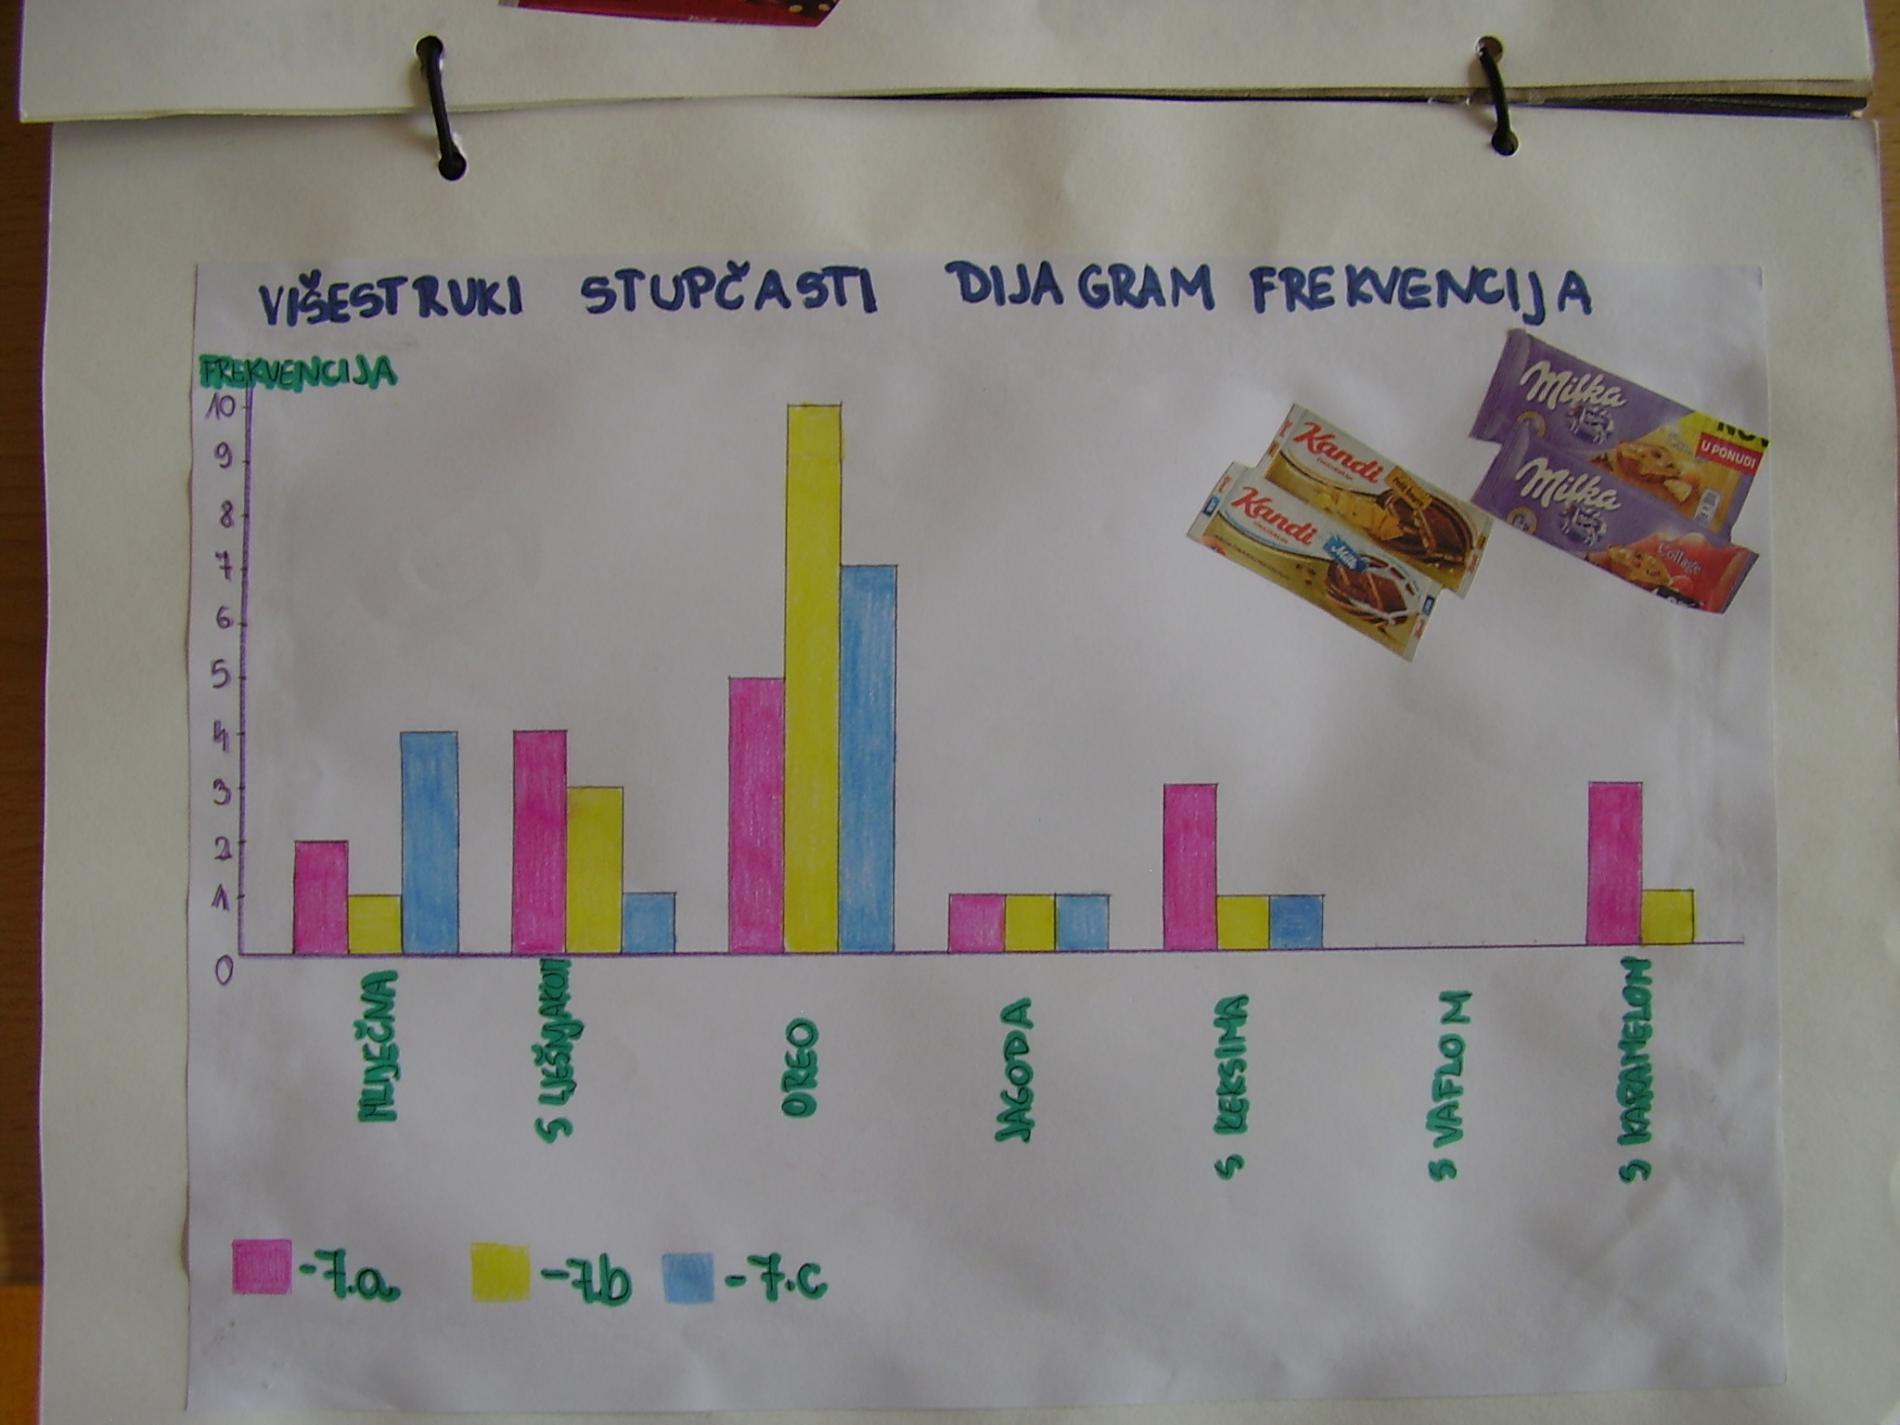 VIŠESTRUKI STUPČASTI DIJAGRAM FREKVENCIJA
FREKVENCIJA
10
9
8
7
6
5
4
3
2
1
0
MLIJEČNA
S LJEŠNJAKOM
OREO
JAGODA
S KEKSIMA
S VAFLOM
S KARAMELOM
-7.a
-7.b
-7.c
Kandi
Kandi
Milk
Milka
NOVO
U PONUDI
Milka
Collage